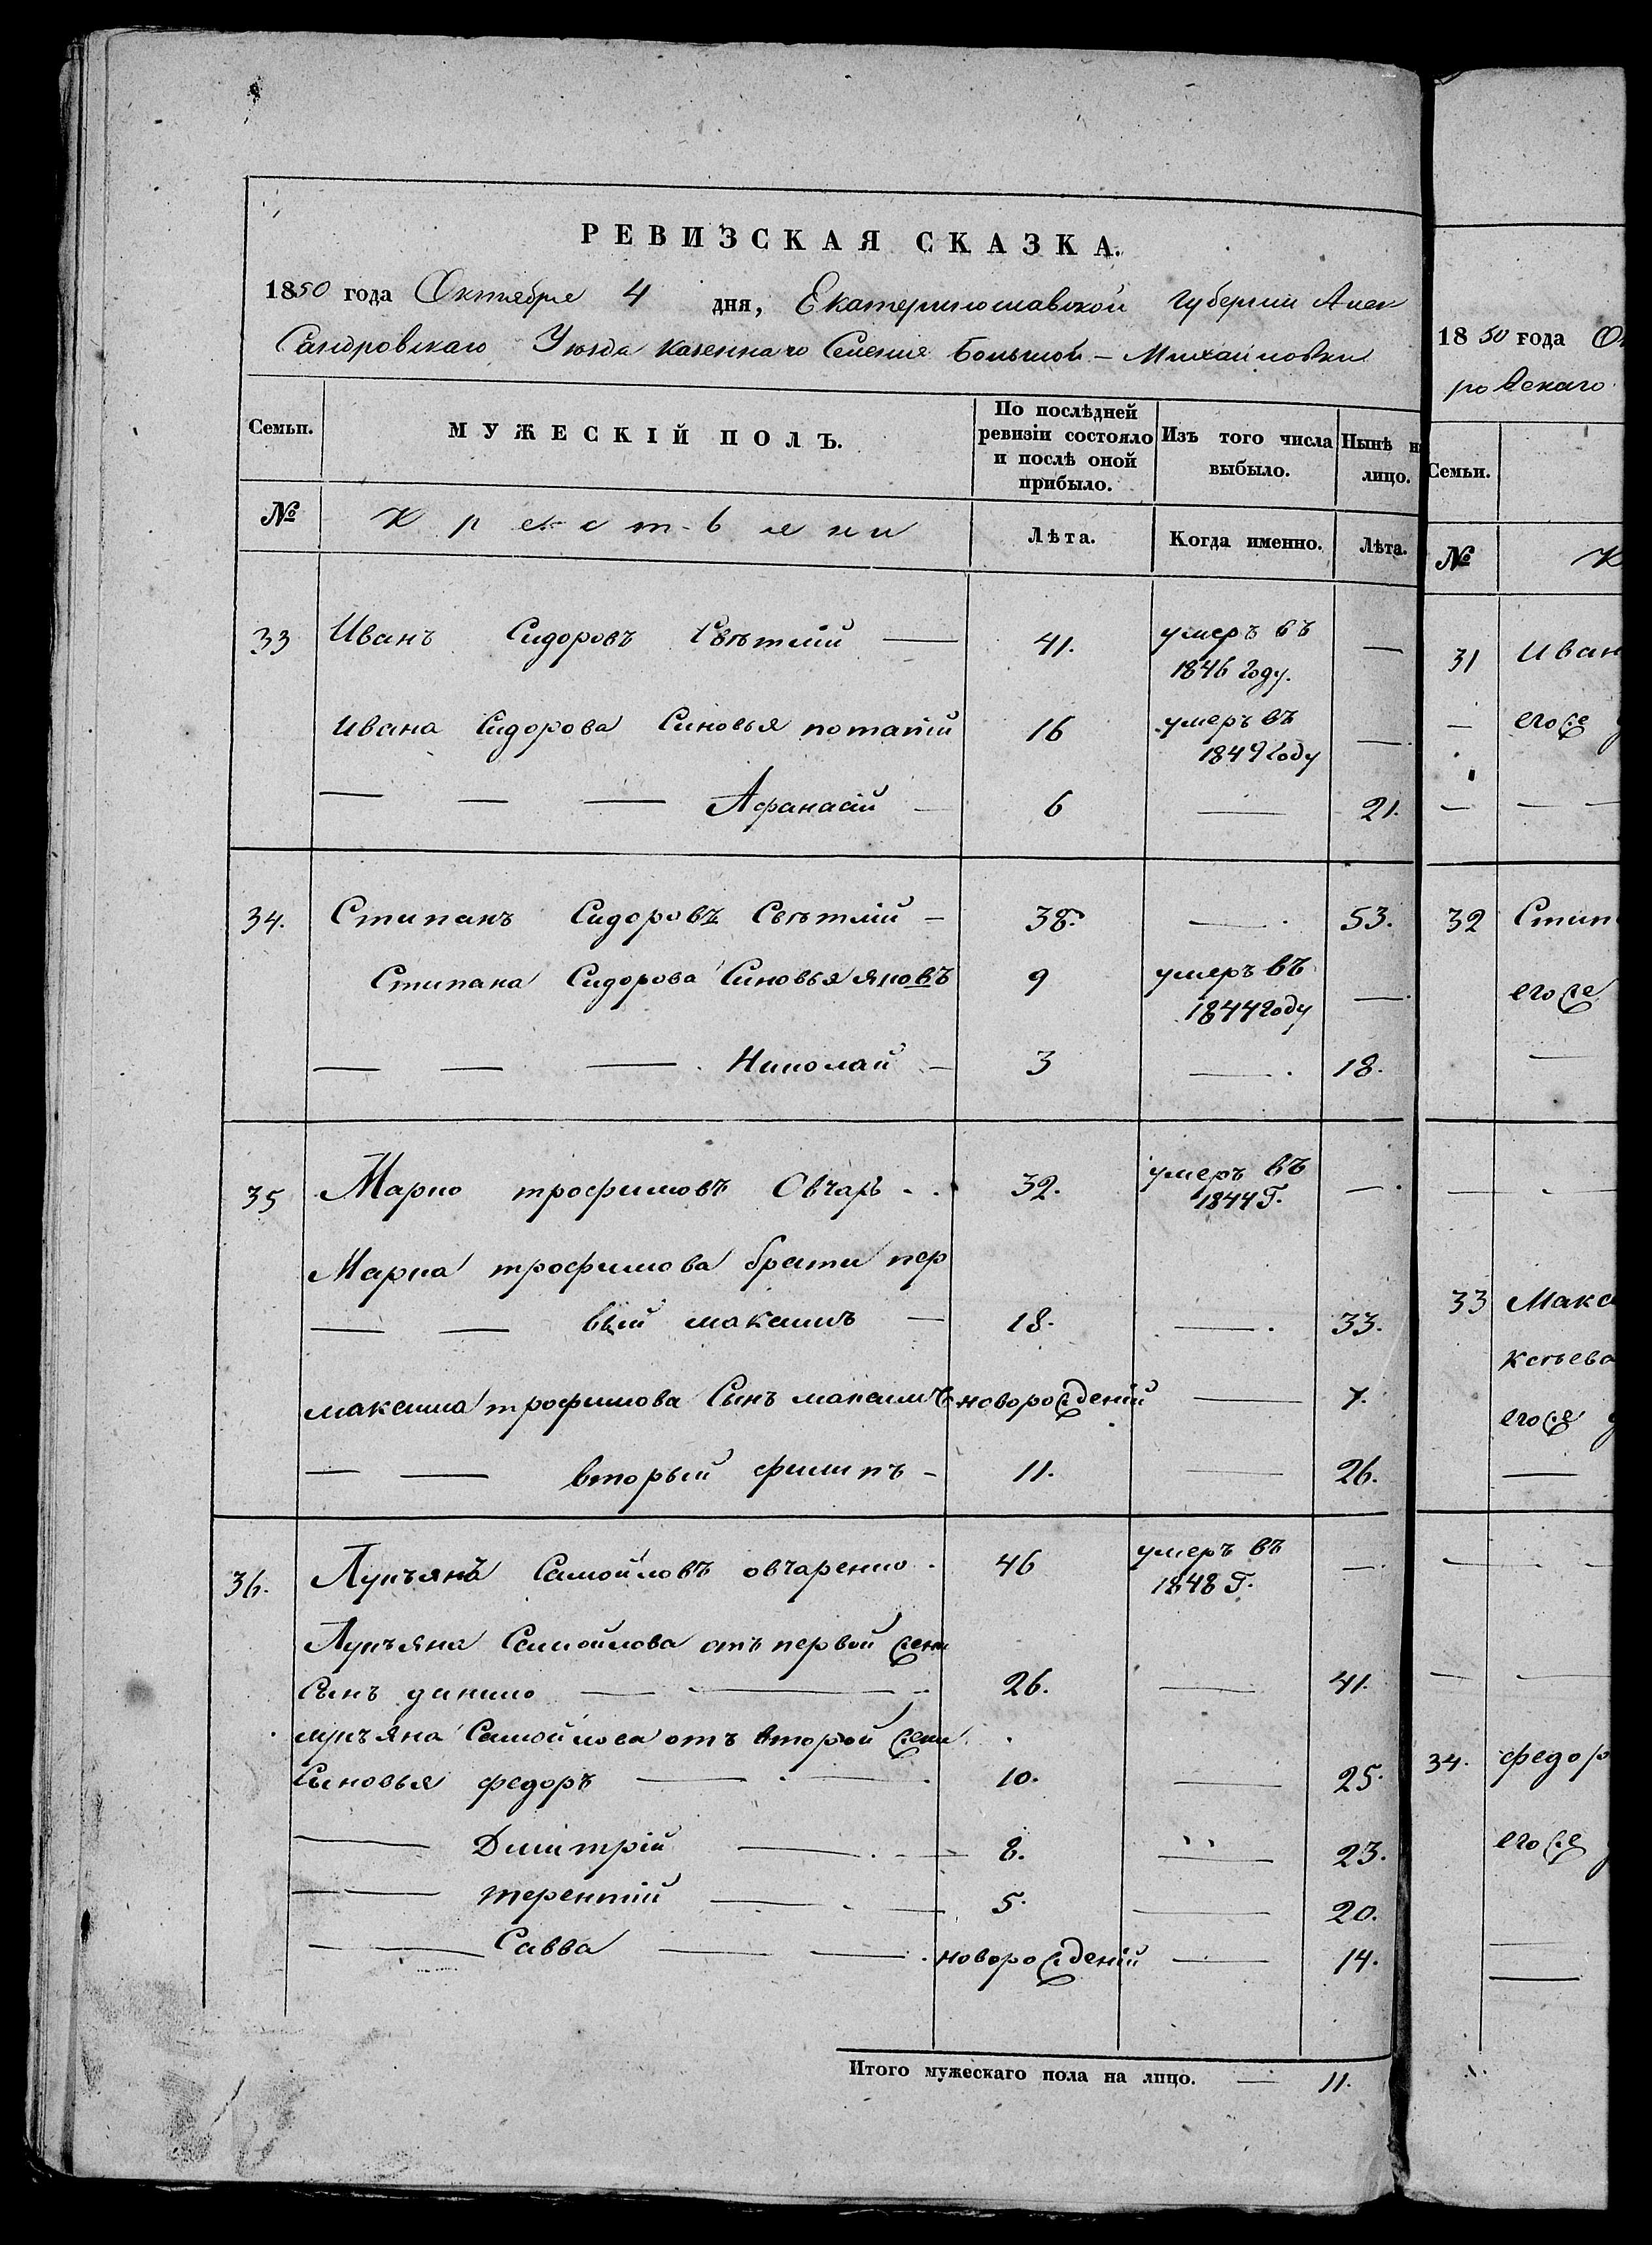 РЕВИЗСКАЯ СКАЗКА.
1850 года Октября 4 дня, Екатеринославской Губернии Алек
сандровскаго Уезда казеннаго Селения Большой - Михайловки
Семьи. МУЖЕСКІЙ ПОЛЪ. По послѣдней ревизіи состояло и послѣ оной прибыло. Изъ того числа выбыло. Нынѣ н лицо.
№ Крестьяни Лѣта. Когда именно. Лѣта.
33 Иванъ Сидоровъ Свѣтлій — 41. умеръ въ 1846 году. —
Ивана Сидорова Синовья потапій 16 умеръ въ 1849 году —
— — — Афанасій — 6 — 21.
34. Стипанъ Сидоровъ Свѣтлій — 38. — 53.
Стипана Сидорова Синовья яковъ 9 умеръ въ 1844 году —
— — — Николай — 3 — 18.
35 Марко трофимовъ Овчаръ 32. умеръ въ 1844 Г. —
Марка трофимова брати пер
— — вый максимъ — 18. — 33.
максима трофимова Сынъ максимъ новорожденій — 7.
— — вторый филипъ — 11. — 26.
36. Лукъянъ Самойловъ овчаренко 46 умеръ въ 1848 Г. —
Лукъяна Самойлова отъ первой жени
Сынъ данило — — 26. — 41.
лукъяна Самойлова отъ второй жени
Синовья федоръ — — 10. — 25.
— Дмитрій — — 8. — 23.
— — терентій — — 5. — 20.
— — Савва — — новорожденій — 14.
Итого мужескаго пола на лицо. — 11.
1850 года О
ровскаго
Семьи.
№ К
31 Иван
— егоже
— — —
32 Стип
егоже
—
— —
33 Макс
ксѣева
егоже
—
— —
— —
34. федор
егоже
—
—